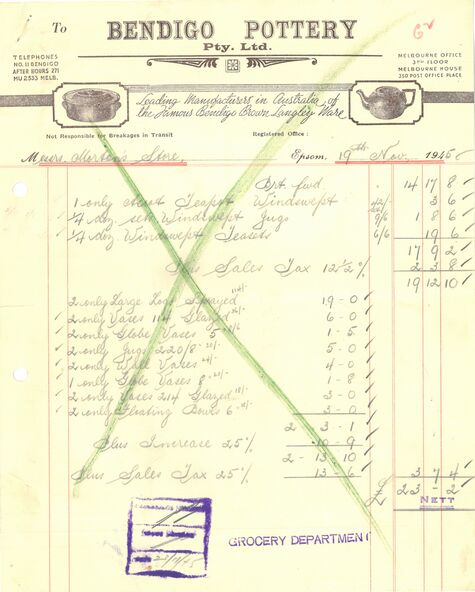 To BENDIGO POTTERY Pty. Ltd.
TELEPHONES
NO. 11 BENDIGO
AFTER HOURS 271
MU 2533 MELB.
MELBOURNE OFFICE
3RD FLOOR
MELBOURNE HOUSE
350 POST OFFICE PLACE
Leading Manufacturers in Australia of
the Famous Bendigo Brown Langley Ware
Not Responsible for Breakages in Transit
Registered Office :
Messrs. Mortons Store, Epsom, 19th Nov. 1945
Brt fwd. 14 17 8
1 only Teapot Windswept 42/- 3 6
1/4 doz. sets Windswept Jugs 1 8 6
1/4 doz. Windswept Teasets 6/6 19 6
17 9 2
Plus Sales Tax 12 1/2 % 2 3 8
19 12 10
2 only Large Sprayed 19 - 0
2 only Vases 114 Glazed 6 - 0
2 only Globe Vases 5 1 - 5
2 only Jugs 220/8 5 - 0
2 only Wall Vases 4 - 0
1 only Globe Vases 8 1 - 8
2 only Vases 214 Glazed 3 - 0
2 only Floating Bowls 6 3 - 0
2 3 - 1
Plus Increase 25% 10 - 9
2 - 13 - 10
Plus Sales Tax 25% 13 - 6 3 7 4
£ 23 - - 2
NETT
GROCERY DEPARTMENT